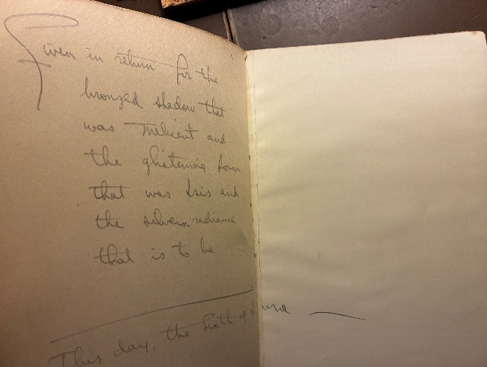 Given in return for the
bronzed shadow that
was Melicent and
the glistening form
that was Isis and
the silvern radiance
that is to be
This day, the Sixth of June